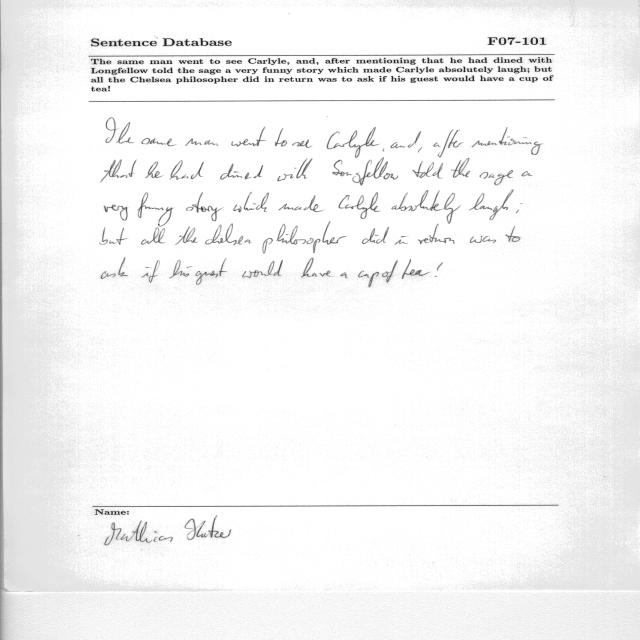 Sentence Database F07-101
The same man went to see Carlyle, and, after mentioning that he had dined with
Longfellow told the sage a very funny story which made Carlyle absolutely laugh; but
all the Chelsea philosopher did in return was to ask if his guest would have a cup of
tea!
The same man went to see Carlyle, and, after mentioning
that he had dined with Longfellow told the sage a
very funny story which made Carlyle absolutely laugh;
but all the Chelsea philosopher did in return was to
ask if his guest would have a cup of tea!
Name:
Mathias